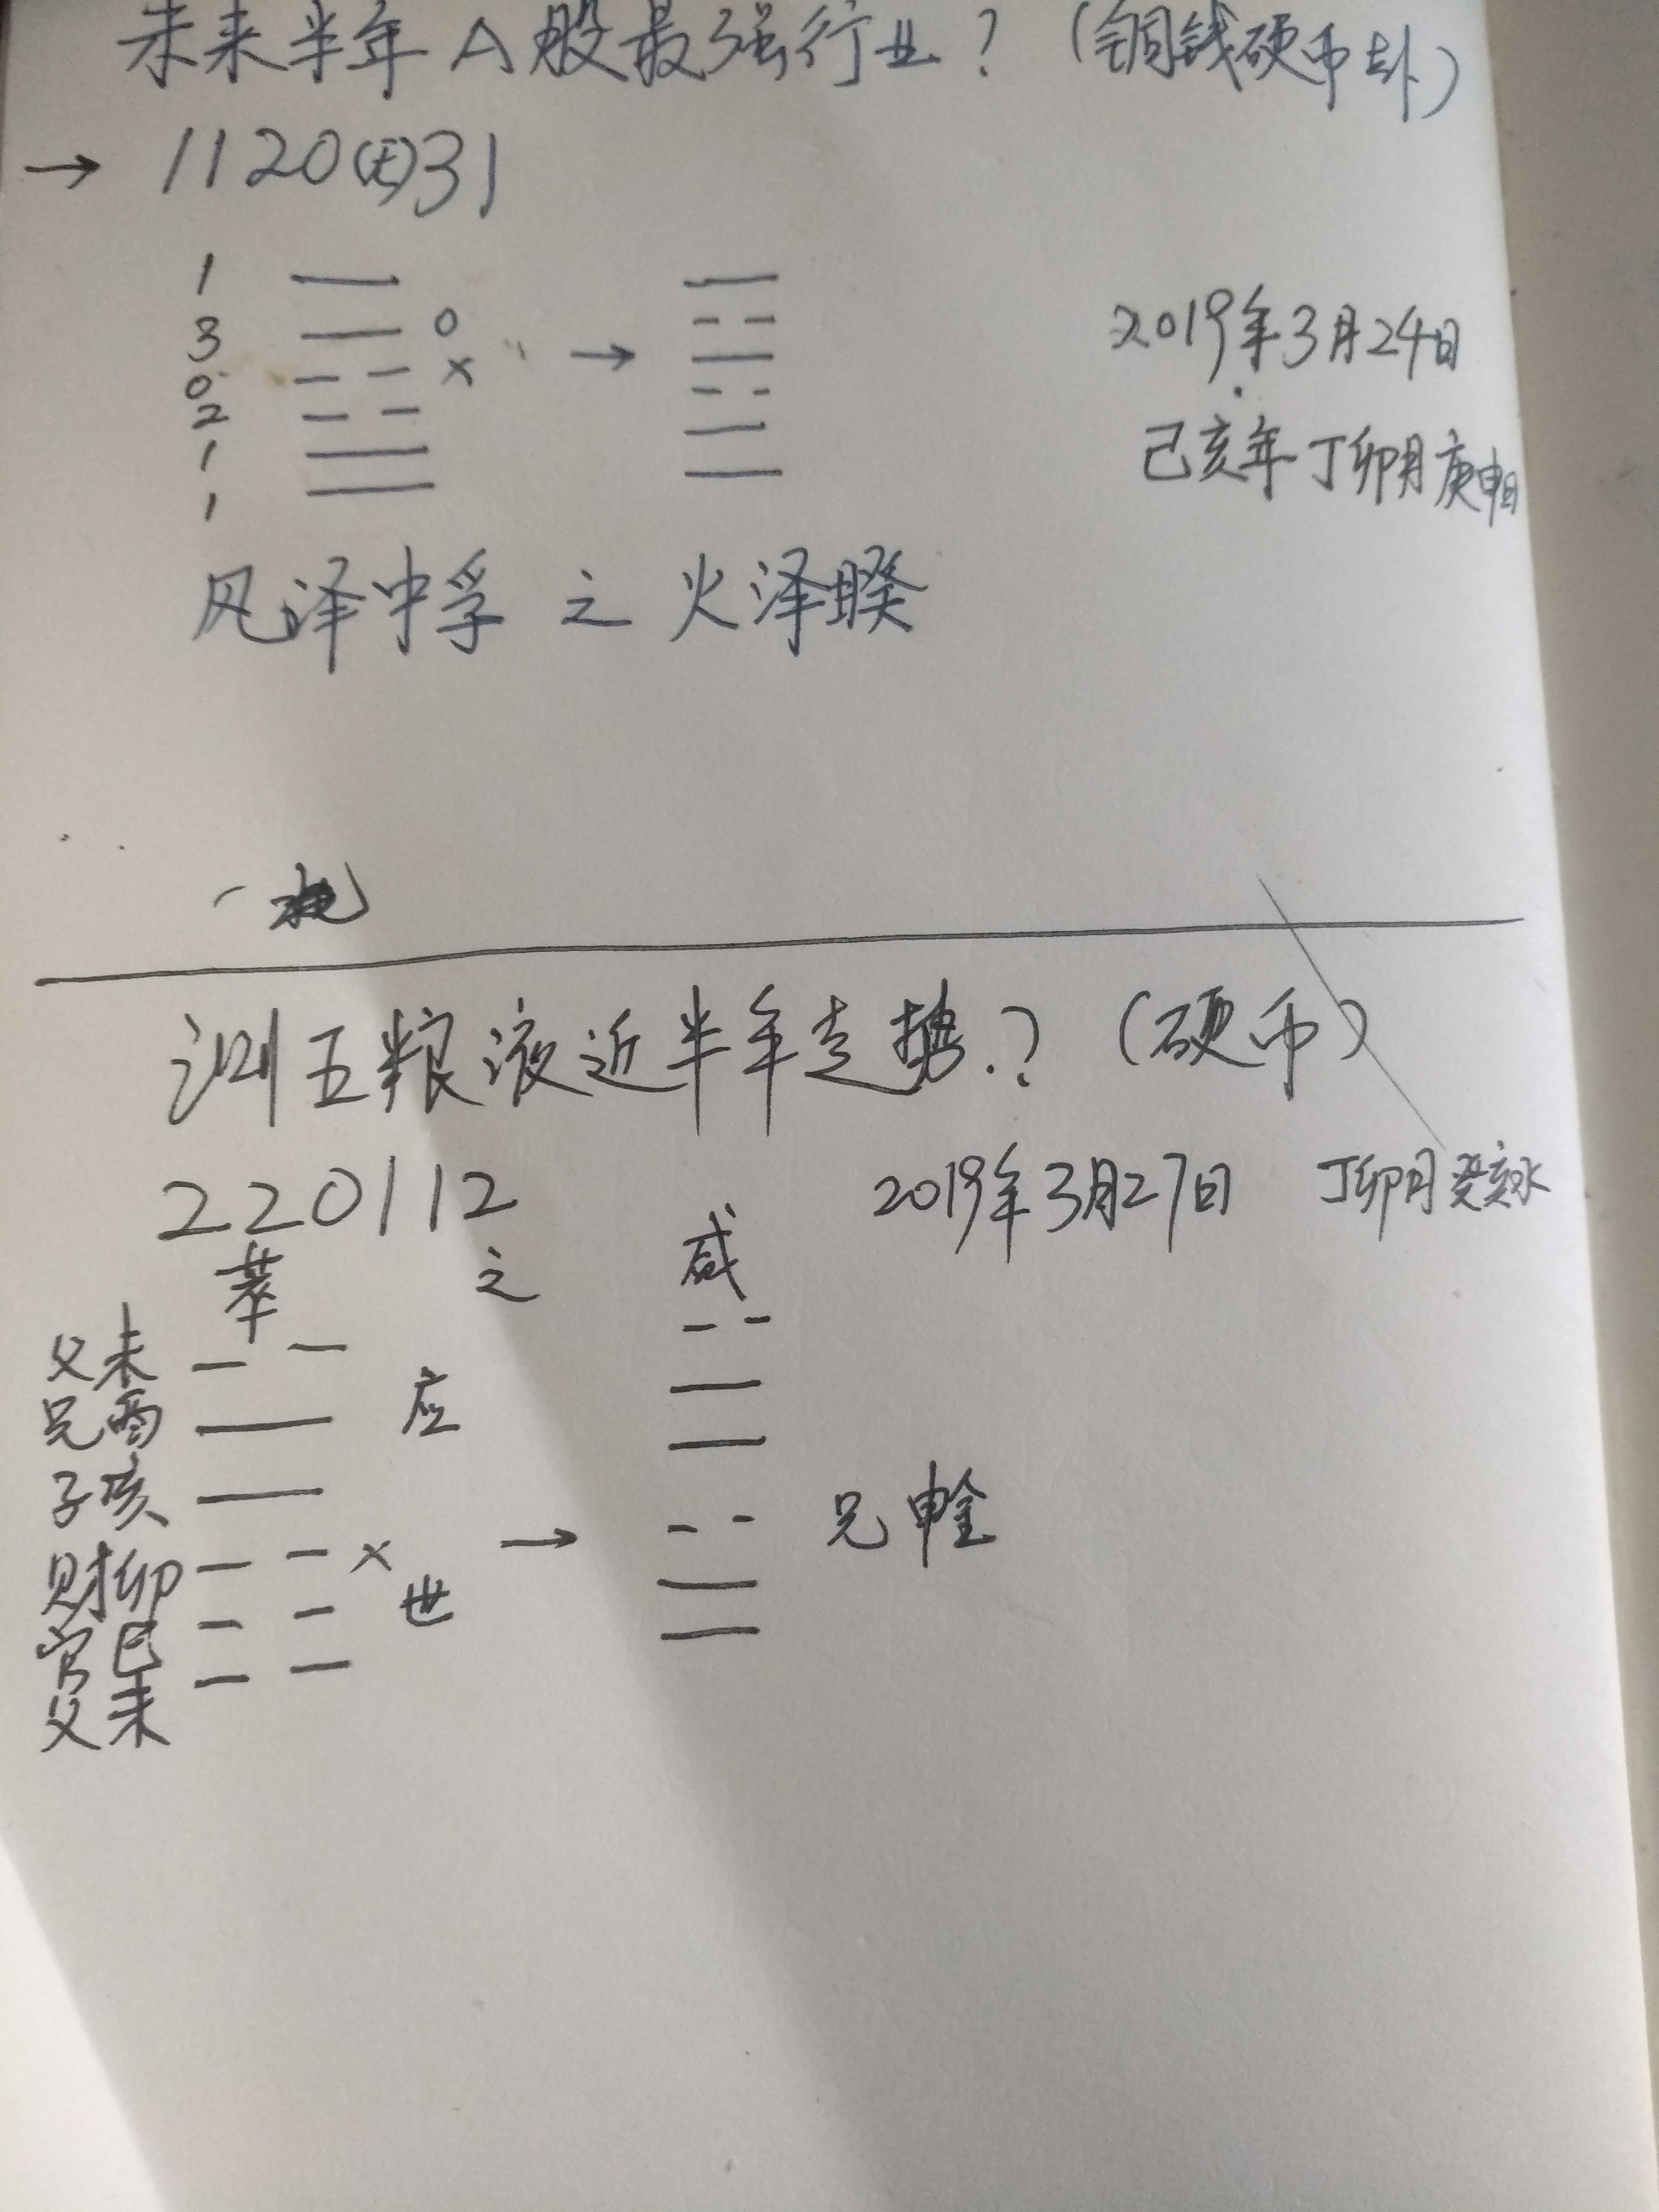 未来半年A股最强行业？（铜钱硬币卦）
→ 1120(无)31
1
3 ○
0 ×
2
1
1
→
2019年3月24日
己亥年丁卯月庚申日
风泽中孚 之 火泽睽
测五粮液近半年走势.？（硬币）
220112
2019年3月27日 丁卯月癸亥水
萃 之 咸
父未
兄酉 应
子亥
财卯 × → 兄申金
官巳 世
父未